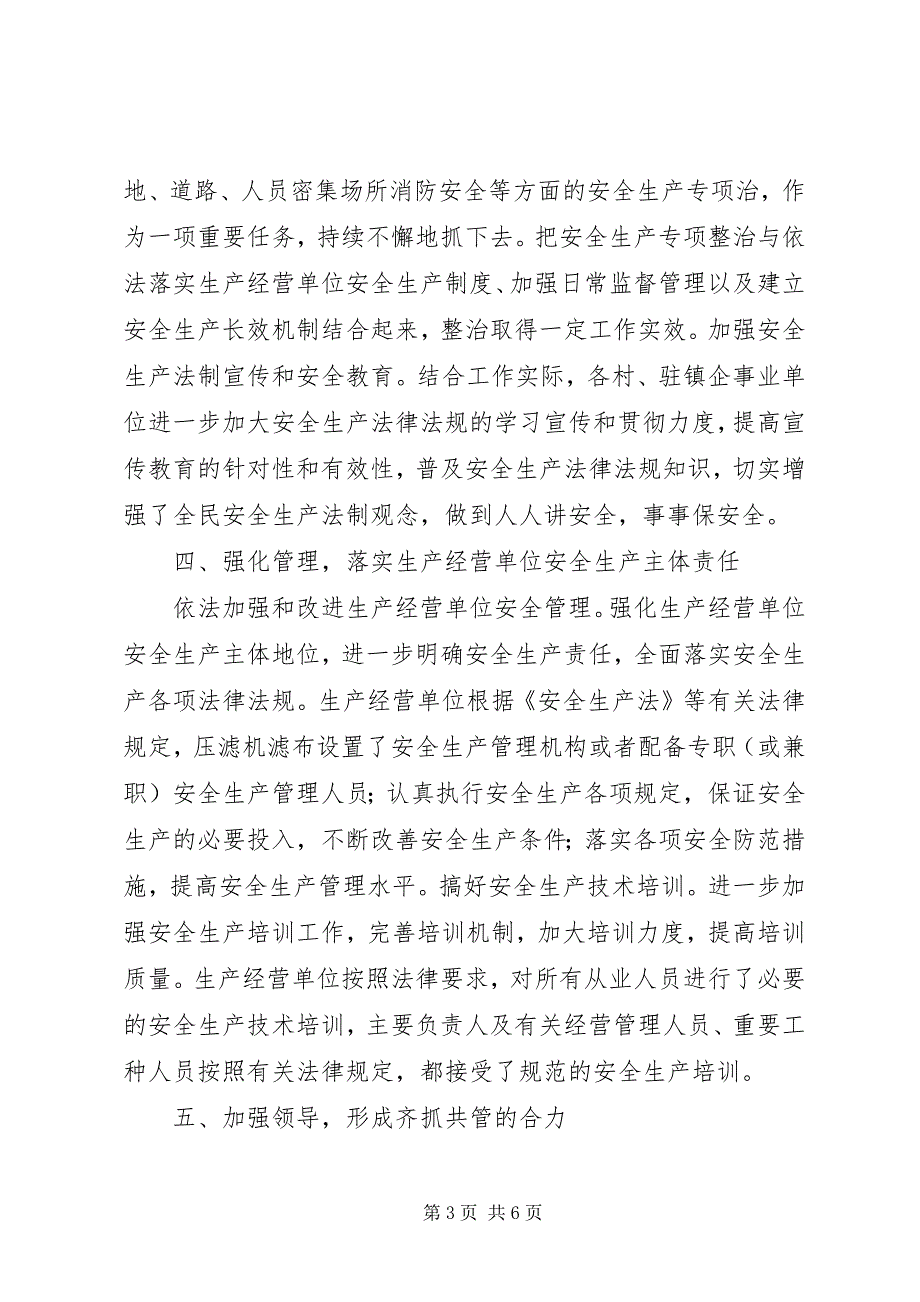 地、道路、人员密集场所消防安全等方面的安全生产专项治，作
为一项重要任务，持续不懈地抓下去。把安全生产专项整治与依
法落实生产经营单位安全生产制度、加强日常监督管理以及建立
安全生产长效机制结合起来，整治取得一定工作实效。加强安全
生产法制宣传和安全教育。结合工作实际，各村、驻镇企事业单
位进一步加大安全生产法律法规的学习宣传和贯彻力度，提高宣
传教育的针对性和有效性，普及安全生产法律法规知识，切实增
强了全民安全生产法制观念，做到人人讲安全，事事保安全。
四、强化管理，落实生产经营单位安全生产主体责任
依法加强和改进生产经营单位安全管理。强化生产经营单位
安全生产主体地位，进一步明确安全生产责任，全面落实安全生
产各项法律法规。生产经营单位根据《安全生产法》等有关法律
规定，压滤机滤布设置了安全生产管理机构或者配备专职（或兼
职）安全生产管理人员；认真执行安全生产各项规定，保证安全
生产的必要投入，不断改善安全生产条件；落实各项安全防范措
施，提高安全生产管理水平。搞好安全生产技术培训。进一步加
强安全生产培训工作，完善培训机制，加大培训力度，提高培训
质量。生产经营单位按照法律要求，对所有从业人员进行了必要
的安全生产技术培训，主要负责人及有关经营管理人员、重要工
种人员按照有关法律规定，都接受了规范的安全生产培训。
五、加强领导，形成齐抓共管的合力
第 3 页 共 6 页